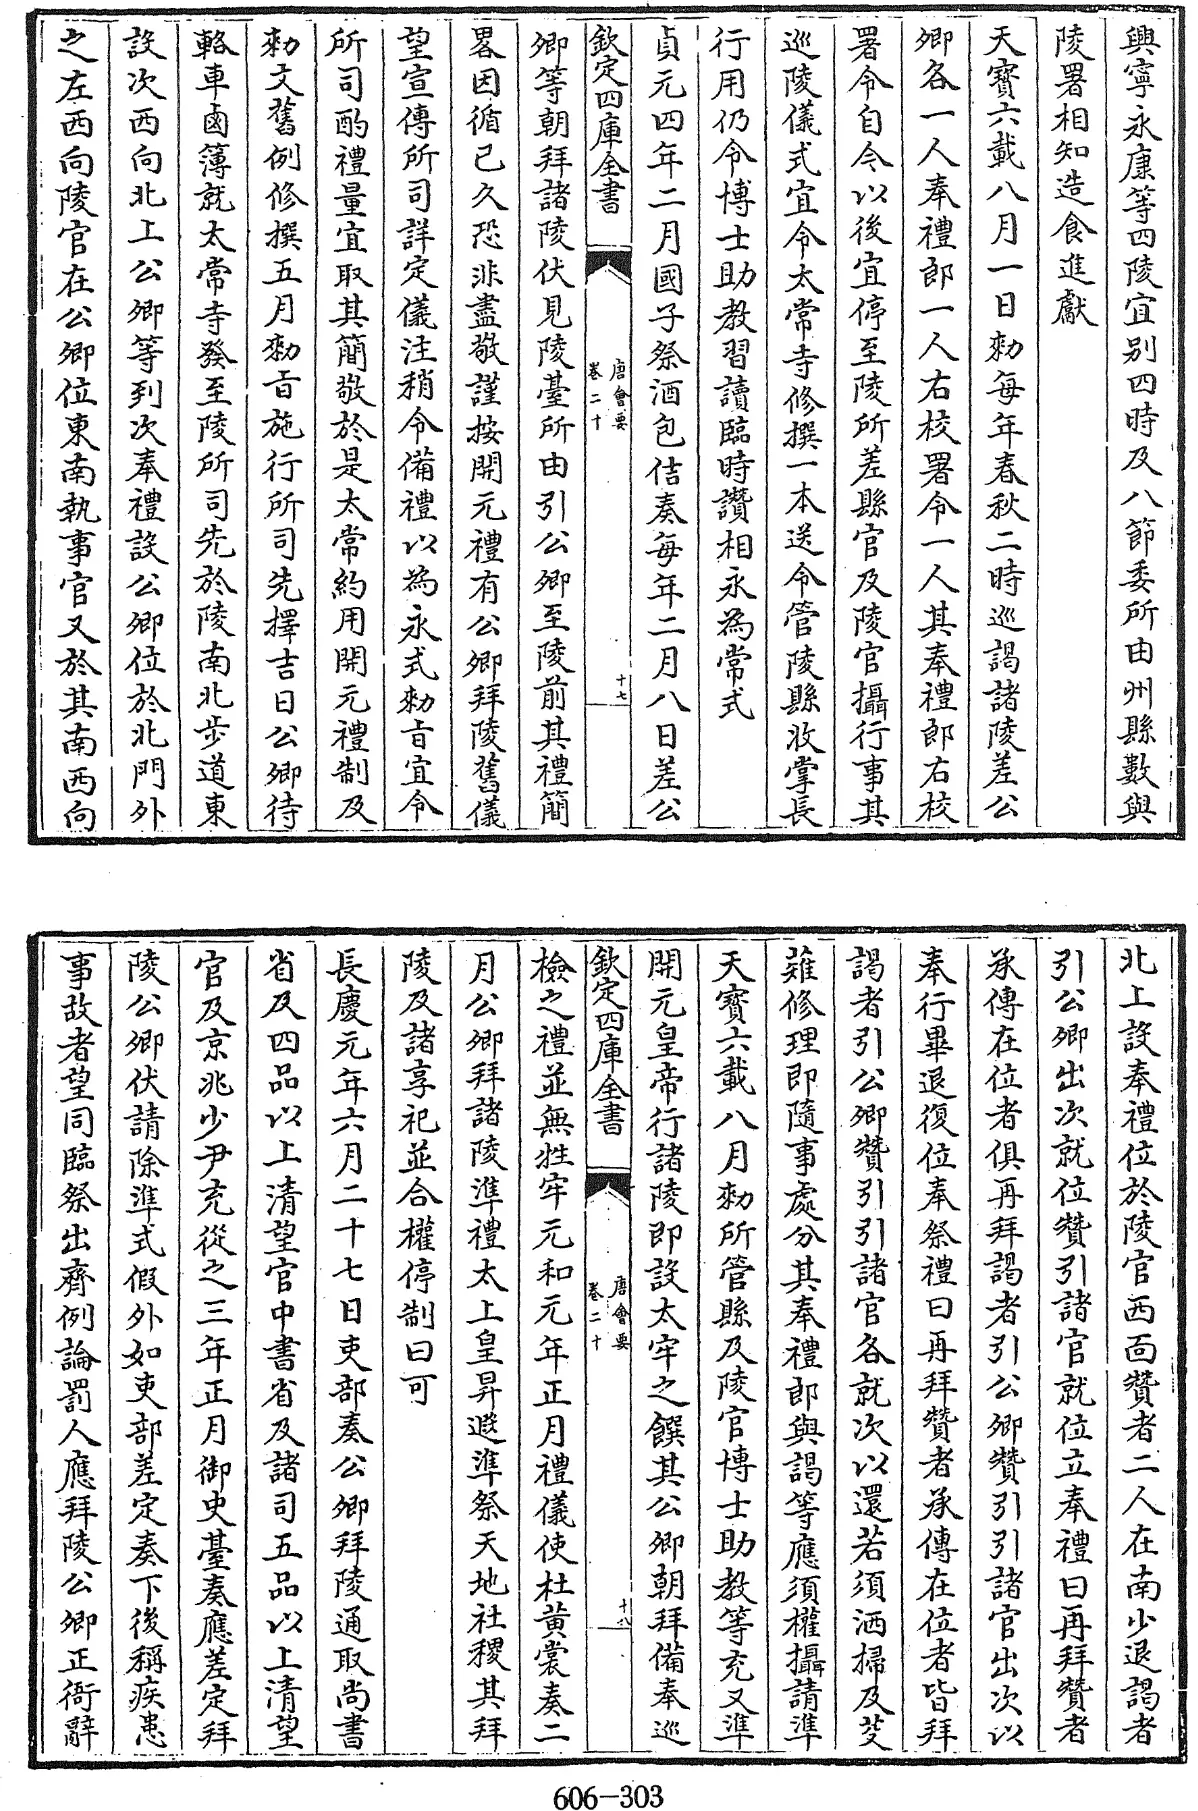 興寧永康等四陵宜别四時及八節委所由州縣數與
陵署相知造食進獻
天寶六載八月一日勑每年春秋二時巡謁諸陵差公
卿各一人奉禮郎一人右校署令一人其奉禮郎右校
署令自今以後宜停至陵所差縣官及陵官攝行事其
巡陵儀式宜令太常寺修撰一本送令管陵縣收掌長
行用仍令博士助教習讀臨時讚相永為常式
貞元四年二月國子祭酒包佶奏每年二月八日差公
欽定四庫全書
唐會要
卷二十
十七
卿等朝拜諸陵伏見陵臺所由引公卿至陵前其禮簡
畧因循已久恐非盡敬謹按開元禮有公卿拜陵舊儀
望宣傳所司詳定儀注稍令備禮以為永式勑旨宜令
所司酌禮量宜取其簡敬於是太常約用開元禮制及
勑文舊例修撰五月勑旨施行所司先擇吉日公卿待
輅車鹵簿就太常寺發至陵所司先於陵南北步道東
設次西向北上公卿等到次奉禮設公卿位於北門外
之左西向陵官在公卿位東南執事官又於其南西向
北上設奉禮位於陵官西面贊者二人在南少退謁者
引公卿出次就位贊引諸官就位立奉禮曰再拜贊者
承傳在位者俱再拜謁者引公卿贊引引諸官出次以
奉行畢退復位奉祭禮曰再拜贊者承傳在位者皆拜
謁者引公卿贊引引諸官各就次以還若須洒掃及芟
薙修理即隨事處分其奉禮郎與謁等應須權攝請準
天寶六載八月勑所管縣及陵官博士助教等充又準
開元皇帝行諸陵即設太牢之饌其公卿朝拜備奉巡
欽定四庫全書
唐會要
卷二十
十八
檢之禮並無牲牢元和元年正月禮儀使杜黄裳奏二
月公卿拜諸陵準禮太上皇昇遐準祭天地社稷其拜
陵及諸享祀並合權停制曰可
長慶元年六月二十七日吏部奏公卿拜陵通取尚書
省及四品以上清望官中書省及諸司五品以上清望
官及京兆少尹充從之三年正月御史臺奏應差定拜
陵公卿伏請除準式假外如吏部差定奏下後稱疾患
事故者望同臨祭出齊例論罰人應拜陵公卿正衙辭
606-303